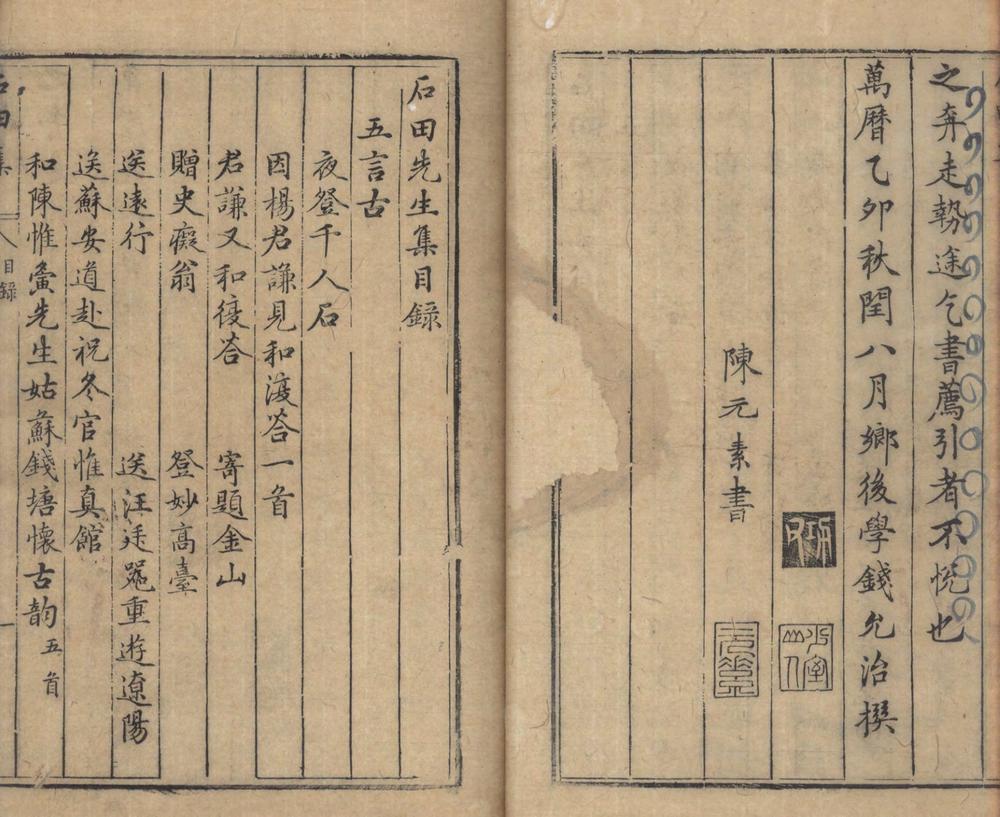 之奔走勢途乞書薦引者不悅也
萬曆乙夘秋閏八月鄉後學錢允治撰
陳元素書
石田先生集目録
五言古
夜登千人石
因楊君謙見和復答一首
君謙又和復答 寄題金山
贈史癡翁 登妙高臺
送遠行 送汪廷器重遊遼陽
送蘇安道赴祝冬官惟真館
和陳惟夤先生姑蘇錢塘懷古韵五首
石田集
目録
一